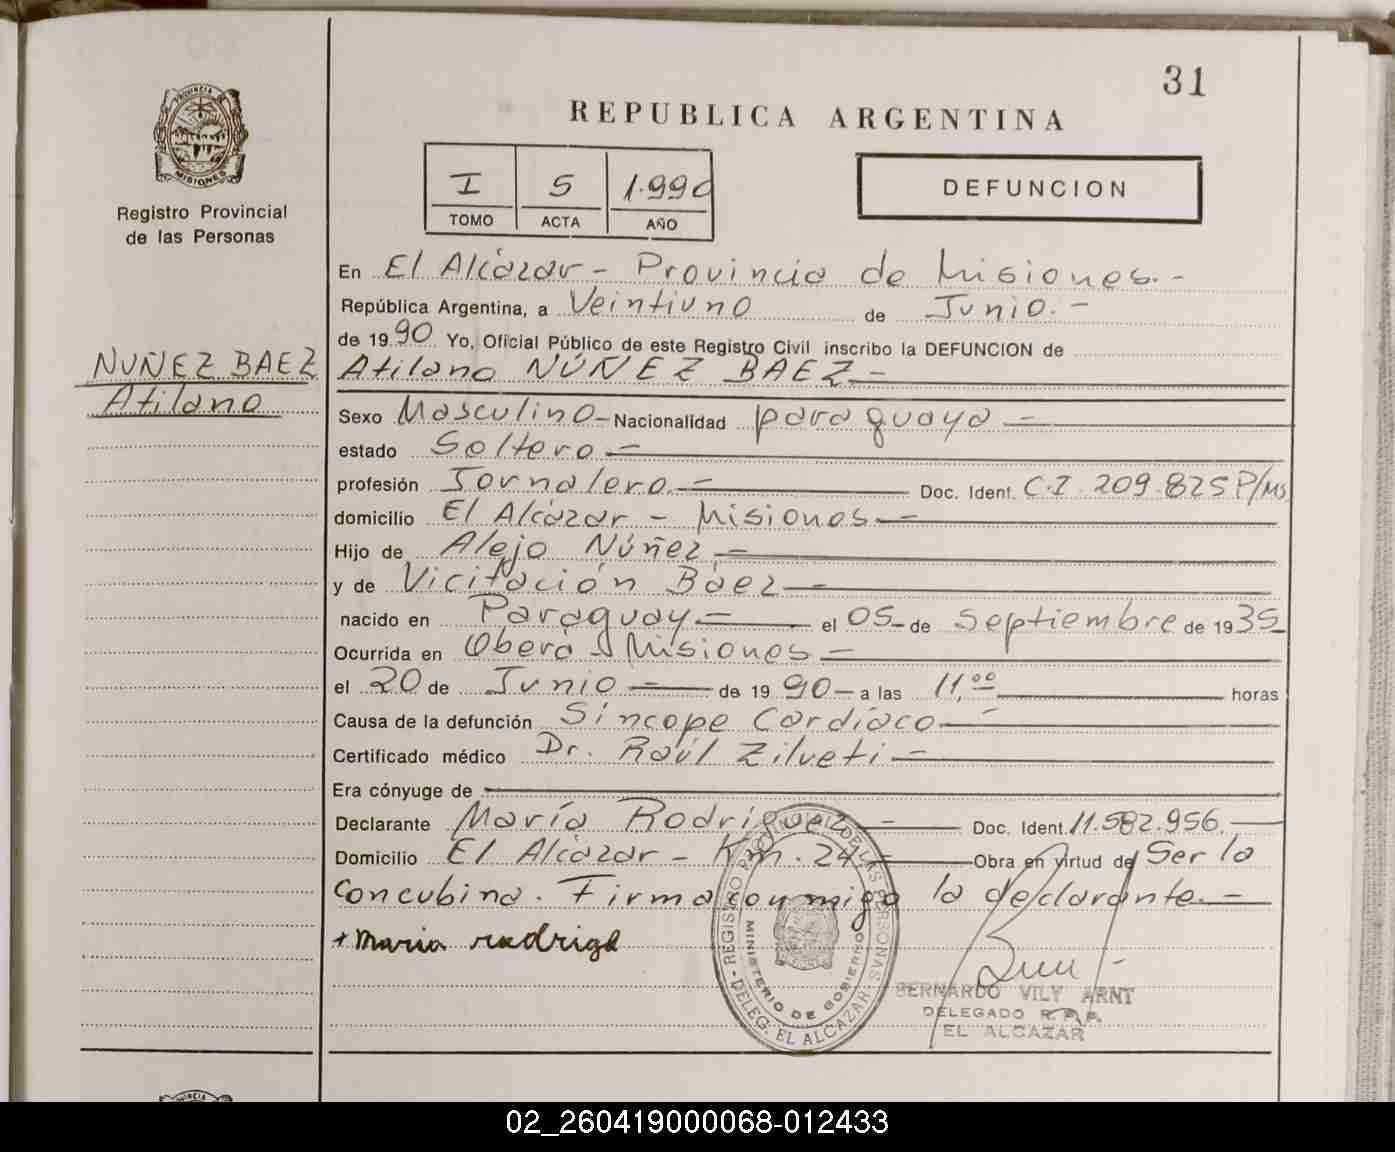 31
REPUBLICA ARGENTINA
PROVINCIA
MISIONES
Registro Provincial
de las Personas
I 5 1.990
TOMO ACTA AÑO
DEFUNCION
En El Alcázar - Provincia de Misiones.-
República Argentina, a Veintiuno de Junio.-
de 1990 Yo, Oficial Público de este Registro Civil inscribo la DEFUNCION de
NUÑEZ BAEZ
Atilano
Atilano NÚÑEZ BAEZ-
Sexo Masculino- Nacionalidad paraguaya-
estado Soltero-
profesión Jornalero.- Doc. Ident. C.I. 209.825 P/Ms
domicilio El Alcázar - Misiones-
Hijo de Alejo Núñez-
y de Vicitación Báez-
nacido en Paraguay- el 05- de Septiembre de 1935
Ocurrida en Oberá - Misiones-
el 20 de Junio- de 1990- a las 11,00 horas
Causa de la defunción Síncope Cardíaco-
Certificado médico Dr. Raúl Zilveti-
Era cónyuge de
Declarante María Rodríguez- Doc. Ident. 11.582.956.-
Domicilio El Alcázar - Km. 24.- Obra en virtud de Ser la
Concubina. Firma conmigo la declarante.-
+ Maria rodrige
REGISTRO PROVINCIAL DE LAS PERSONAS
MINISTERIO DE GOBIERNO
DELEG. EL ALCAZAR
BERNARDO VILY ARNT
DELEGADO R.P.P.
EL ALCAZAR
PROVINCIA
02_260419000068-012433